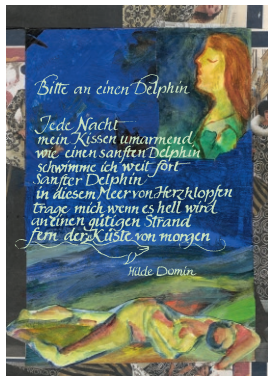 Bitte an einen Delphin
Jede Nacht
mein Kissen umarmend
wie einen sanften Delphin
schwimme ich weit fort
Sanfter Delphin
in diesem Meer von Herzklopfen
trage mich wenn es hell wird
an einen gütigen Strand
fern der Küste von morgen
Hilde Domin